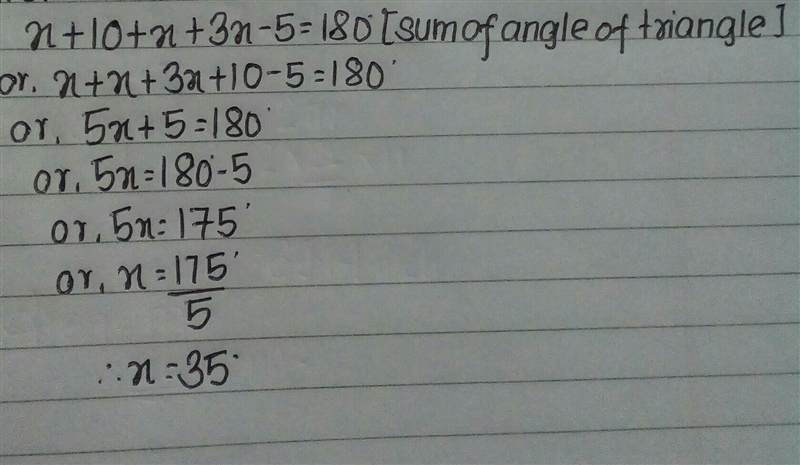 x+10+x+3x-5=180° [sum of angle of triangle]
or, x+x+3x+10-5=180°
or, 5x+5=180°
or, 5x=180°-5
or, 5x=175°
or, x=175°
5
∴x=35°